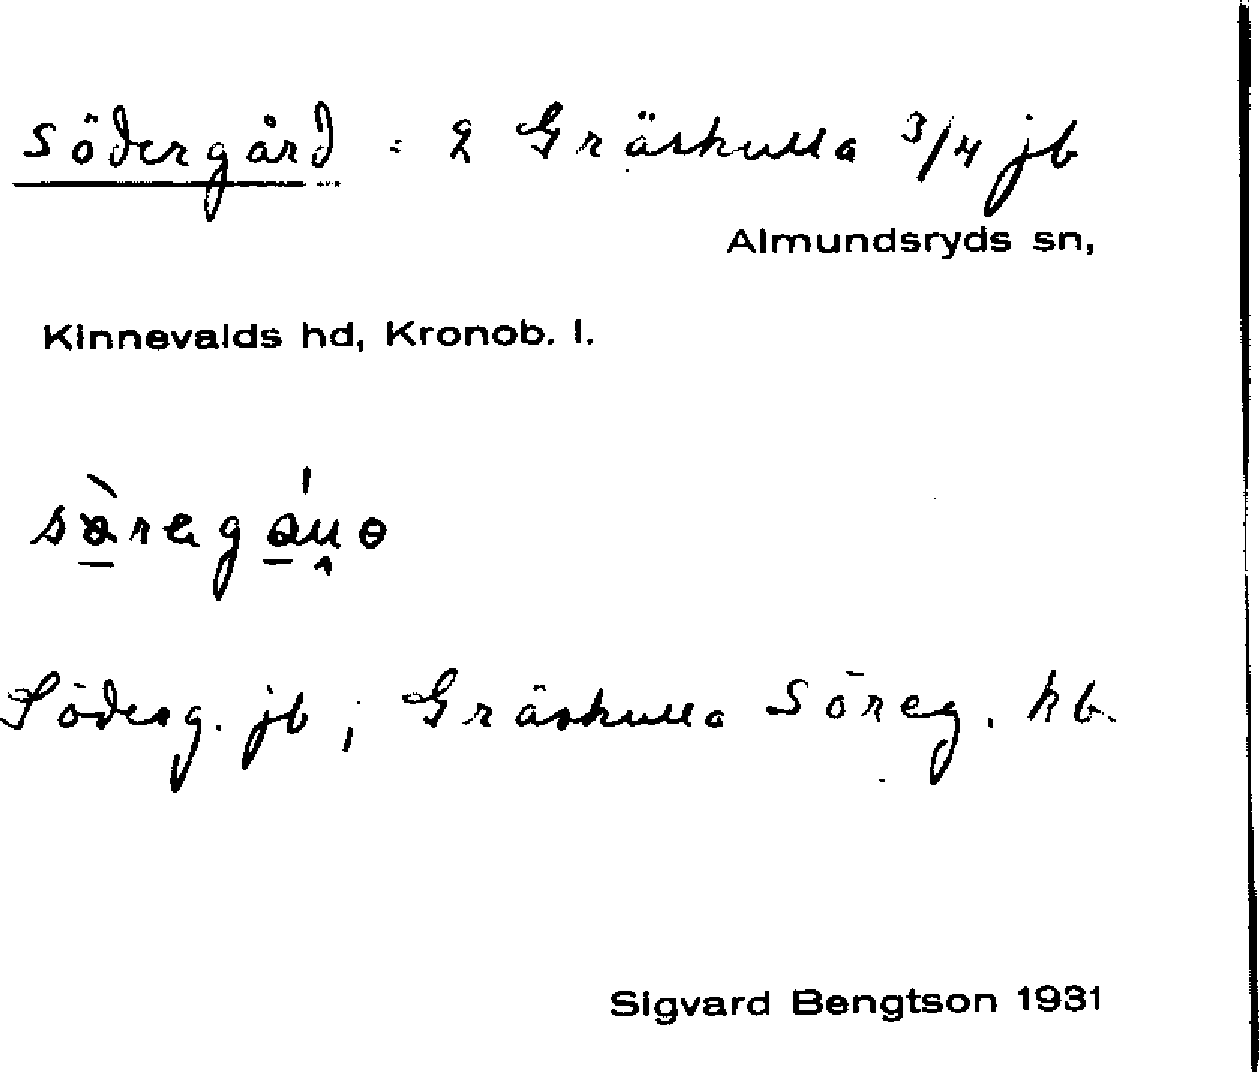 Södergård = 2 Gräskulla 3/4 jb
Almundsryds sn,
Kinnevalds hd, Kronob. l.
Söderg. jb ; Gräskulla Söreg. kb.
Sigvard Bengtson 1931